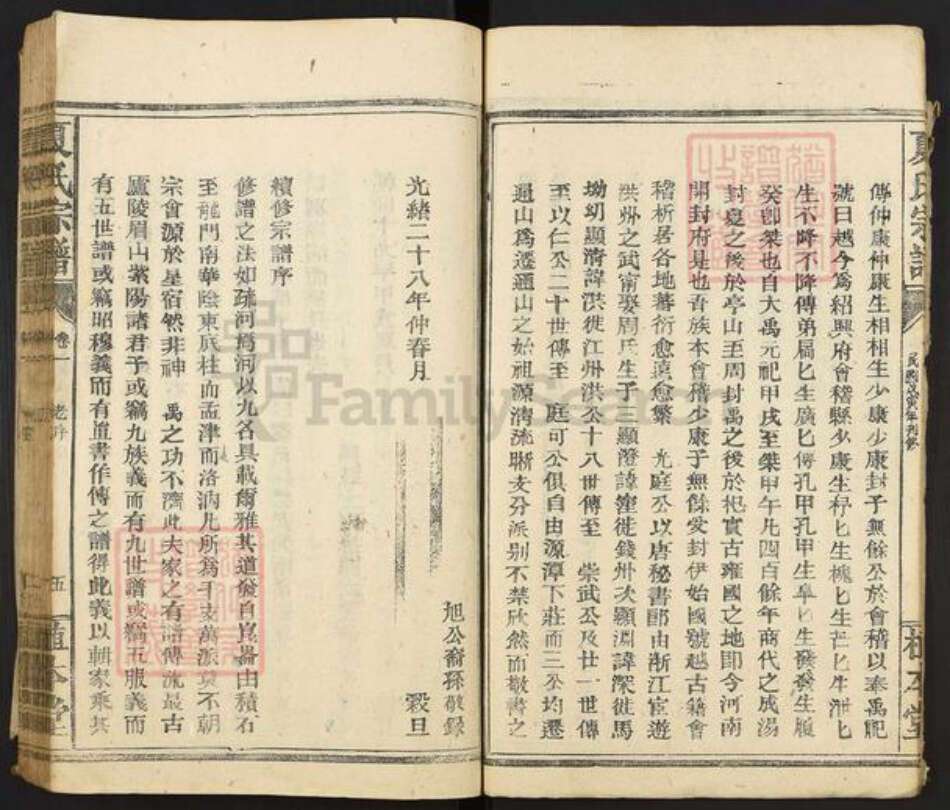 夏氏宗譜
傳仲康仲康生相相生少康少康封子無餘公於會稽以奉禹祀
號曰越今為紹興府會稽縣少康生杼匕生槐匕生芒匕生泄匕
生不降不降傳弟扃匕生廣匕傳孔甲孔甲生皐匕生發發生履
癸卽桀也自大禹元祀甲戌至桀甲午凡四百餘年商代之成湯
封夏之後於亭山至周封禹之後於杞實古雍國之地即今河南
開封府是也吾族本會稽少康子無餘爰封伊始國號越古籍會
稽析居各地蕃衍愈遠愈繁 光庭公以唐秘書郎由浙江宦遊
洪州之武甯娶周氏生子三顯澄諱瀅徙錢州次顯淵諱深徙馬
坳幼顯清諱洪徙江州洪公十八世傳至 崇武公及廿一世傳
至以仁公二十世傳至 庭可公俱自由源潭下莊而三公均遷
通山為遷通山之始祖源清流晰支分派别不禁欣然而敬書之
光緒二十八年仲春月
旭公裔孫敬錄
穀旦
續修宗譜序
修譜之法如疏河焉河以九名具載爾雅其道發自崑崙由積石
至龍門南華陰東底柱而孟津而洛汭凡所為千支萬派莫不朝
宗會源於星宿然非神 禹之功不濟此夫家之有譜傳流最古
廬陵眉山紫陽諸君子或竊九族義而有九世譜或竊五服義而
有五世譜或竊昭穆義而有道書作傳之譜得此義以輯家乘其
夏氏宗譜
卷一
老序
五
植本堂